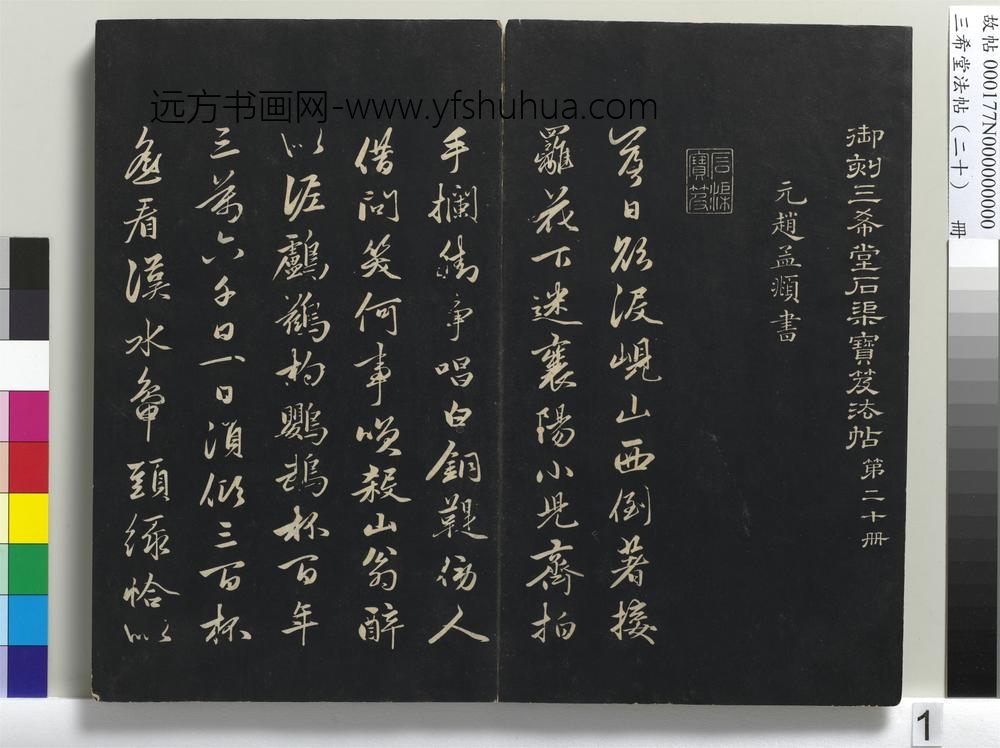 故帖 000177N000000000
三希堂法帖（二十） 冊
远方书画网-www.yfshuhua.com
御刻三希堂石渠寶笈法帖 第二十冊
元趙孟頫書
石渠寶笈
落日欲没峴山西倒著接
䍦花下迷襄陽小兒齊拍
手攔街爭唱白銅鞮傍人
借問笑何事笑殺山翁醉
似泥鸕鶿杓鸚鵡杯百年
三萬六千日一日須傾三百杯
遙看漢水鴨頭綠恰似
1